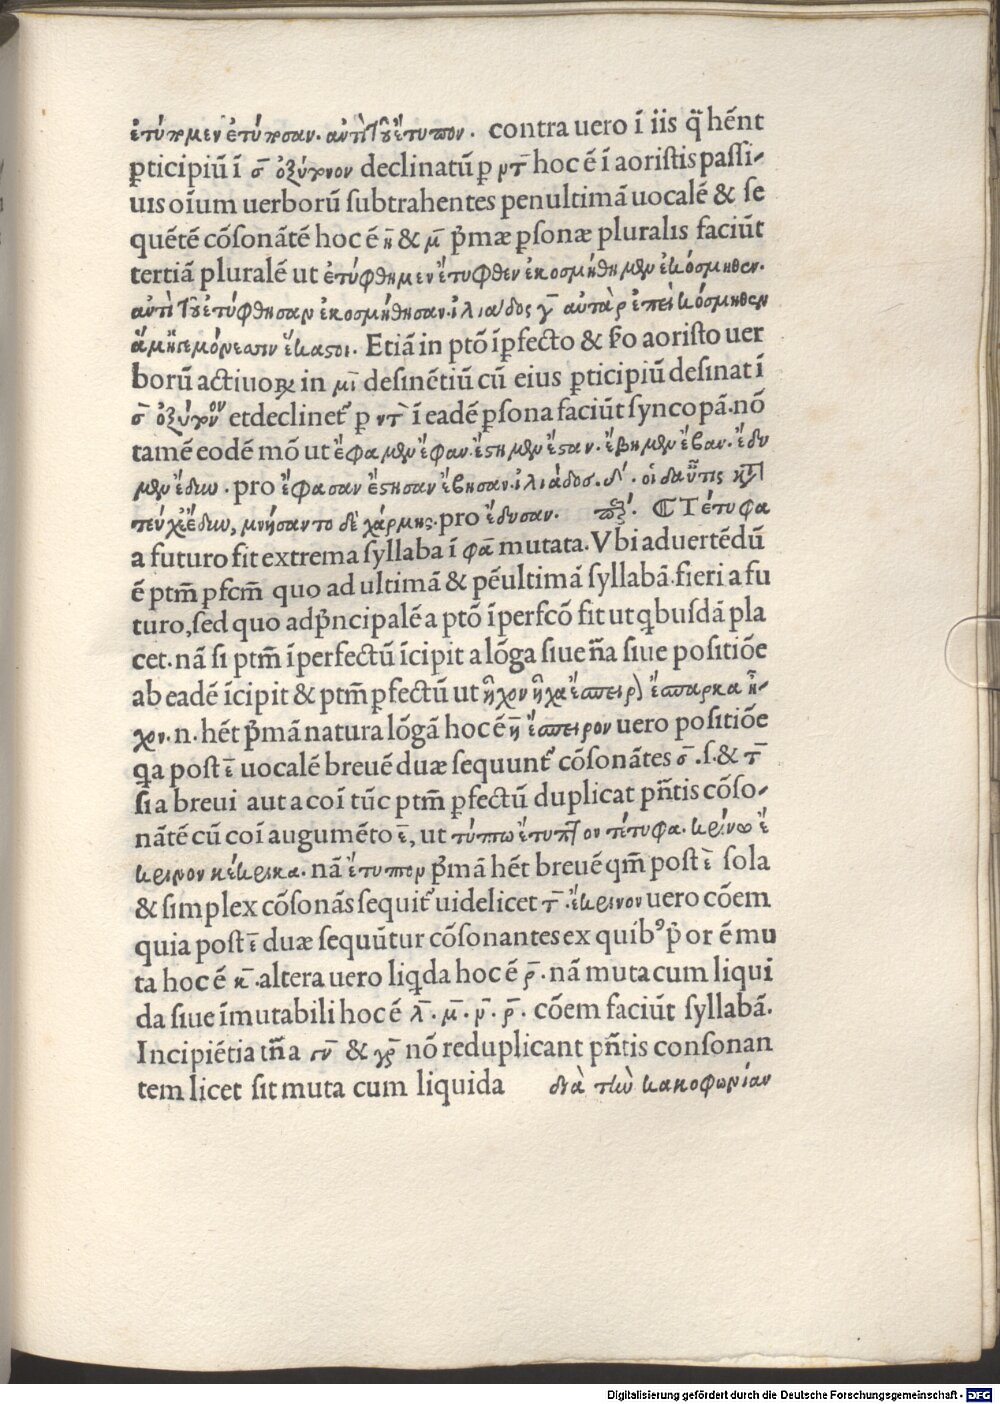 ἐτύπομεν ἐτύποσαν. ἀντὶ τοῦ ἔτυπον. contra uero ī iis q̄ hēnt
ꝑticipiū ī σ̄ ὀξύτονον declinatū ꝑ ντ̄ hoc ē ī aoristis paſſi-
uis oīum uerborū ſubtrahentes penultimā uocalē & ſe
quētē cōſonātē hoc ē η̄ & μ̄ p̄mæ ꝑſonæ pluralis faciūt
tertiā pluralē ut ἐτύφθημεν ἔτυφθεν ἐκοσμήθημεν ἐκόσμηθεν.
ἀντὶ τοῦ ἐτύφθησαν ἐκοσμήθησαν. ἰλιάδος γ̄ αὐτὰρ ἐπεὶ κόσμηθεν
ἅμ' ἡγεμόνεσσιν ἕκαστοι. Etiā in ptō īꝑfecto & ſ̄o aoriſto uer
borū actiuoꝝ in μῑ deſinētiū cū eius ꝑticipiū deſinat ī
σ̄ ὀξύτονον etdeclinet᷑ ꝑ ντ̄ ī eadē ꝑſona faciūt ſyncopā. nō
tamē eodē mō ut ἔφαμεν ἔφαν. ἔστημεν ἔσταν. ἔβημεν ἔβαν. ἔδυ
μεν ἔδυν. pro ἔφασαν ἔστησαν ἔβησαν. ἰλιάδος. δ'. οἱ δ' αὖτις κατὰ
τεύχε' ἔδυν, μνήσαντο δὲ χάρμης. pro ἔδυσαν. ☾ Τέτυφα
a futuro fit extrema ſyllaba ī φᾱ mutata. Vbi aduertēdū
ē ptm̄ pfcm̄ quo ad ultimā & pēultimā ſyllabā fieri a fu
turo, ſed quo ad p̄ncipalē a ptō īperfcō fit ut ꝗbuſdā pla
cet. nā ſi ptm̄ īperfectū īcipit a lōga ſiue n̄a ſiue poſitiōe
ab eadē īcipit & ptm̄ ꝑfectū ut ἦχον ἦχα ἔσπειρον ἔσπαρκα ἦ-
χον. n. hēt p̄mā natura lōgā hoc ē η̄ ἔσπειρον uero poſitiōe
ꝗa poſt ε̄ uocalē breuē duæ ſequunt᷑ cōſonātes σ̄. ſ. & τ̄
ſi a breui aut a coī tūc ptm̄ ꝑfectū duplicat pn̄tis cōſo-
nātē cū coī augumēto ε̄, ut τύπτω ἔτυπτον τέτυφα. κρίνω ἔ
κρινον κέκρικα. nā ἔτυπτον p̄mā hēt breuē qm̄ poſt ε̄ ſola
& ſimplex cōſonās ſequit᷑ uidelicet τ̄. ἔκρινον uero cōem
quia poſt ε̄ duæ ſequūtur cōſonantes ex quibꝰ p̄or ē mu
ta hoc ē κ̄. altera uero liꝗda hoc ē ρ̄. nā muta cum liqui
da ſiue īmutabili hoc ē λ̄. μ̄. ν̄. ρ̄. cōem faciūt ſyllabā.
Incipiētia tn̄ a γν̄ & γρ̄ nō reduplicant pn̄tis conſonan
tem licet ſit muta cum liquida διὰ τὴν κακοφωνίαν
Digitalisierung gefördert durch die Deutsche Forschungsgemeinschaft - DFG